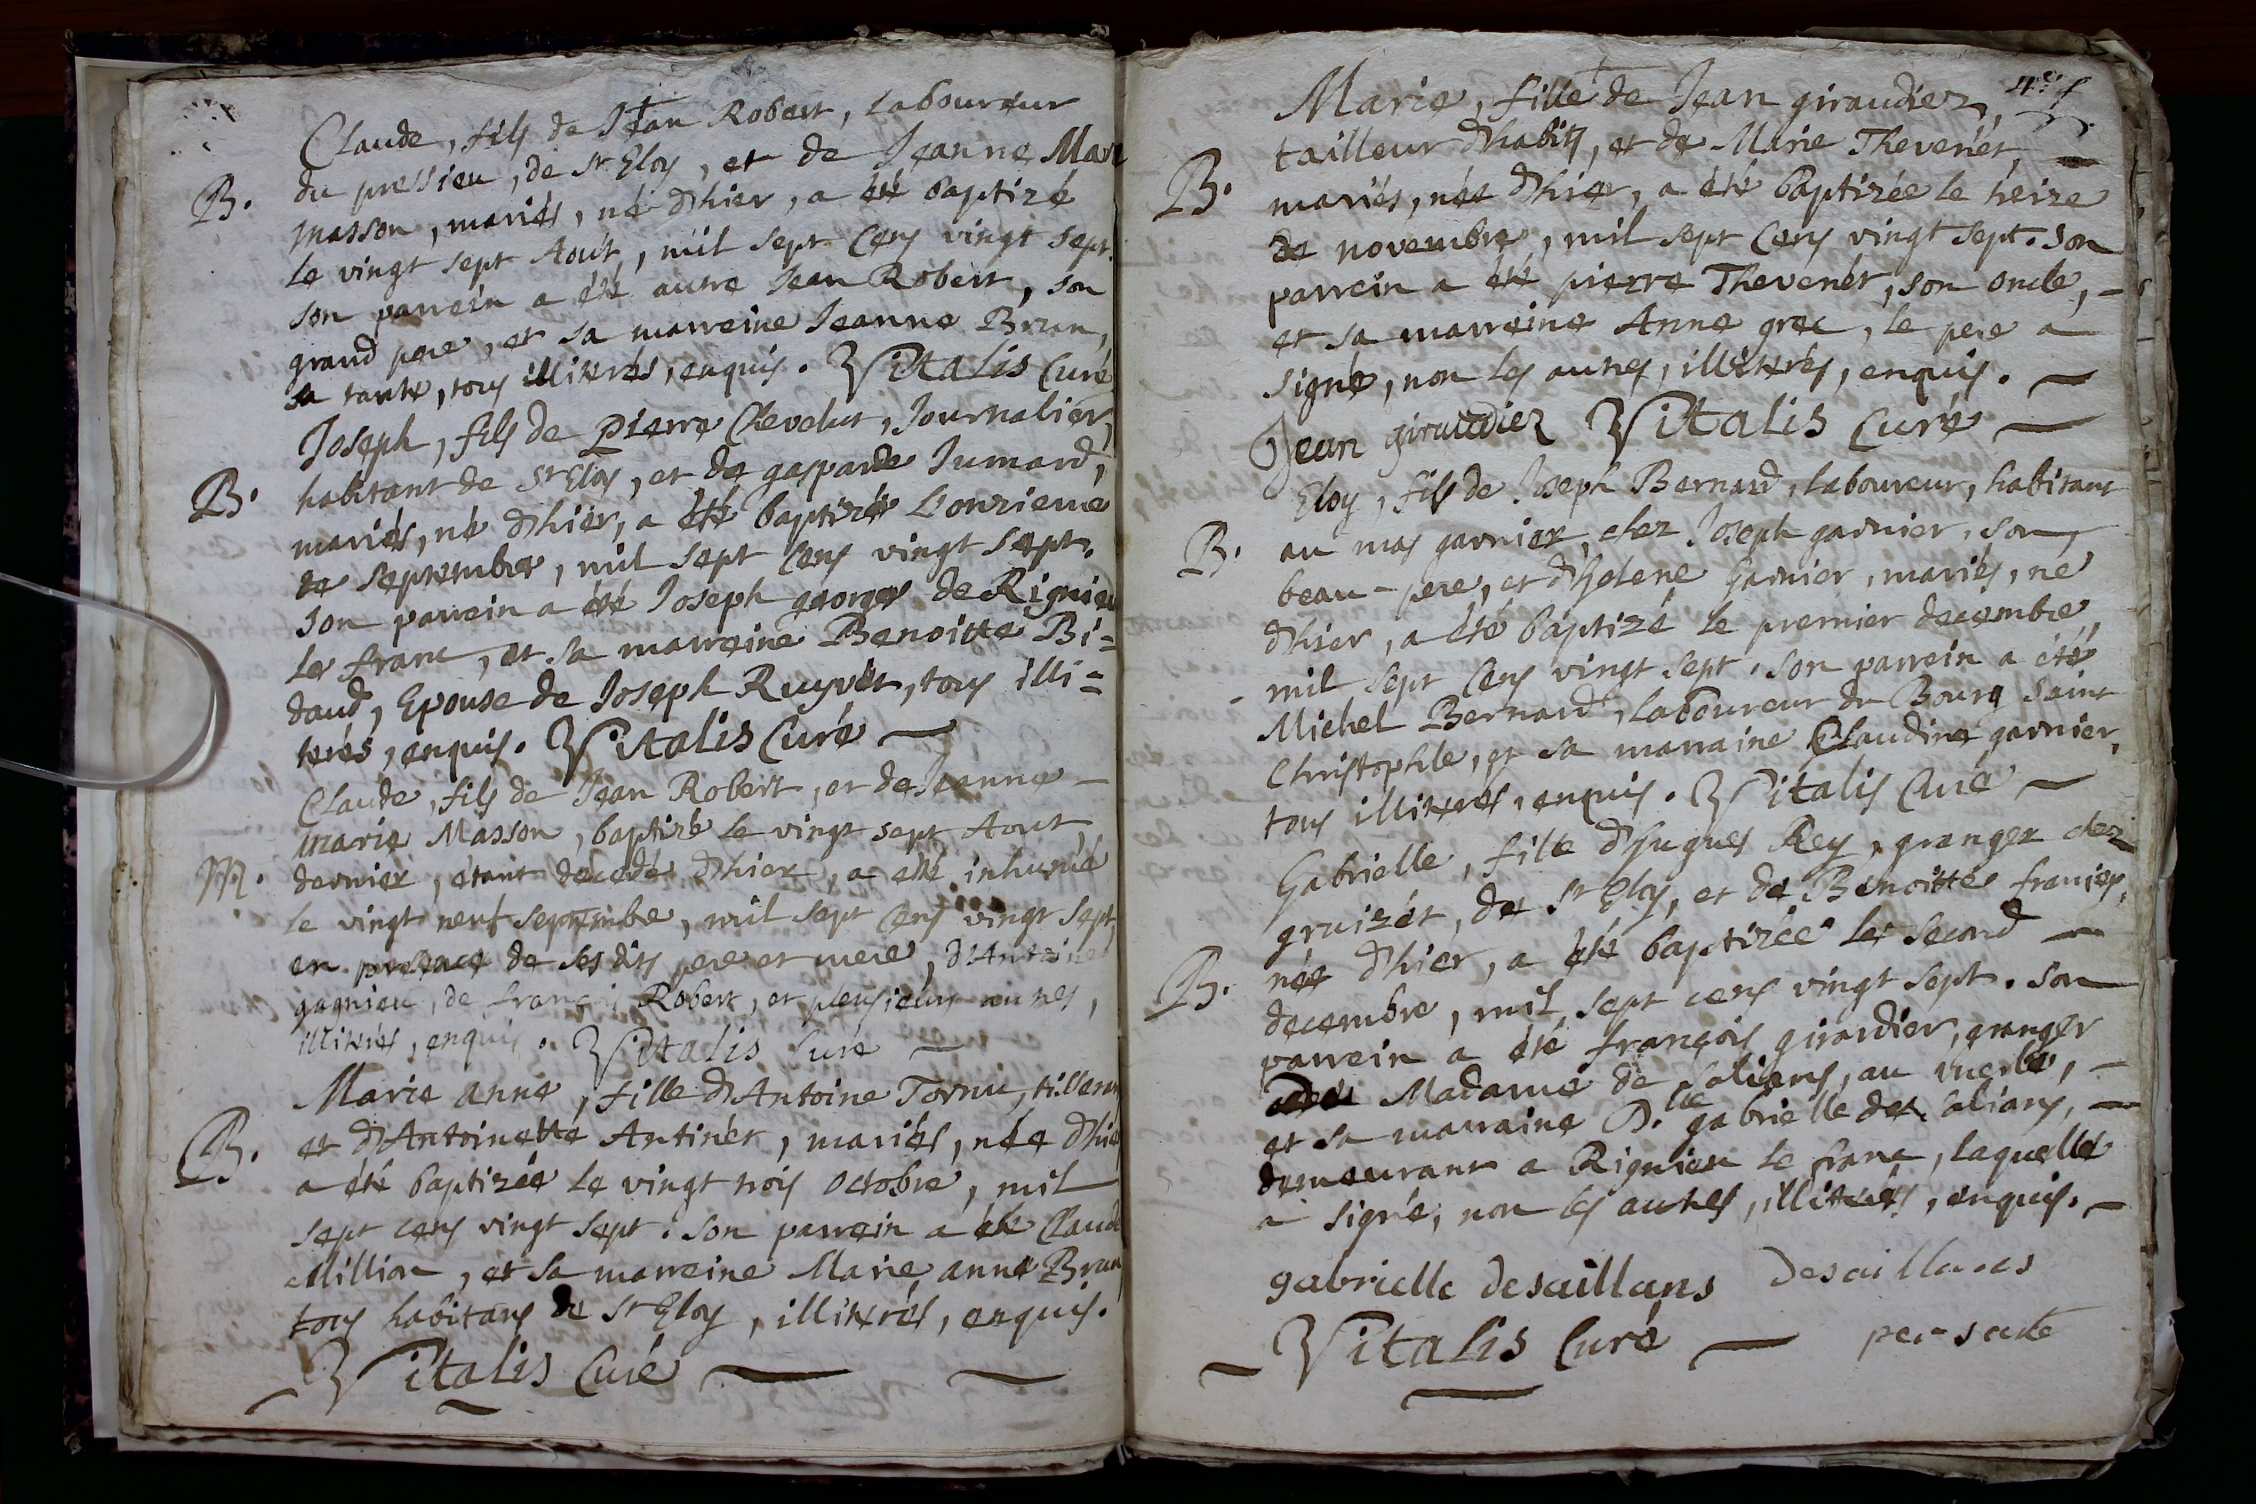 Claude, fils de Jean Robert, Laboureur
B. du pressieu, de St Eloy, et de Jeanne Marie
Masson, mariés, né d'hier, a été baptizé
le vingt sept Aout, mil sept cens vingt sept.
son parrein a été autre Jean Robert, son
grand pere, et sa marreine Jeanne Brun,
sa tante, tous illiterés, enquis. Vitalis Curé
Joseph, fils de Pierre Chevelut, Journalier,
B. habitant de St Eloy, et de gasparde Jumard,
mariés, né d'hier, a été baptizé L'onzieme
de septembre, mil sept cens vingt sept.
son parrein a été Joseph george de Rignieu
le franc, et sa marreine Benoitte Bi=
daud, Epouse de Joseph Ruyvet, tous illi=
terés, enquis. Vitalis Curé
Claude, fils de Jean Robert, et de Jeanne
marie Masson, baptizé le vingt sept Aout
M. dernier, étant decedé d'hier, a été inhumé
le vingt neuf septembre, mil sept cens vingt sept,
en presence de sesdits pere et mere, d'Antoine
gagnieu, de françois Robert, et plusieurs autres,
illiterés, enquis. Vitalis Curé
Marie anne, fille d'Antoine Tornu,
B. et d'Antoinette Antinét, mariés, née d'hier
a été baptizée le vingt trois Octobre, mil
sept cens vingt sept. son parrein a été Claude
Million, et sa marreine Marie anne Brun
tous habitans de St Eloy, illiterés, enquis.
Vitalis Curé
4e f
Marie, fille de Jean giraudier,
tailleur d'habits, et de Marie Thevenét,
B. mariés, née d'hier, a été baptizée le treize
de novembre, mil sept cens vingt sept. son
parrein a été pierre Thevenét, son oncle,
et sa marreine Anne grec, le pere a
signé, non les autres, illiterés, enquis.
Jean giraudier Vitalis Curé
Eloy, fils de Joseph Bernard, laboureur, habitant
B. au mas garnier, chez Joseph garnier, son
beau-pere, et d'helene Garnier, mariés, né
d'hier, a été baptizé le premier decembre,
mil sept cens vingt sept. son parrein a été
Michel Bernard, laboureur du Bourg saint
Christophle, et sa marraine Claudine garnier,
tous illiterés, enquis. Vitalis Curé
Gabrielle, fille d'hugues Rey, granger chez
gruizét, de St Eloy, et de Benoitte
B. née d'hier, a été baptizée le second
decembre, mil sept cens vingt sept. son
parrein a été françois girardier, granger
Madame de salians, au
et sa marraine D.lle gabrielle de salians,
demeurant a Rignieu le franc, laquelle
a signé, non les autres, illiterés, enquis.
gabrielle desaillans desaillans
Vitalis Curé